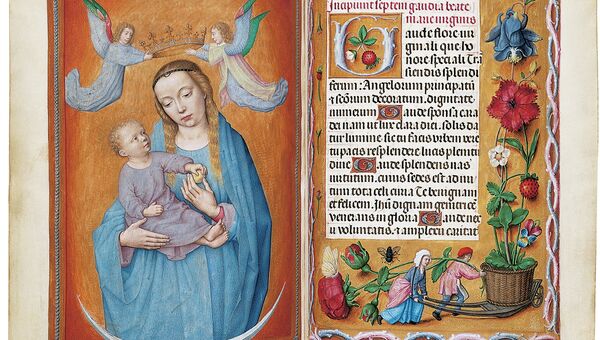 Incipiunt septem gaudia beate
marie virginis
Gaude flore vir
ginali que ho
nore speciali Tra
scendis splendi
ferum: Angelorum principatū
et scōrum decoratum, dignitate
numerum Gaude sponsa cara
dei nam ut lux clara diei, solis da
tur lumine sic tu facis orbem ver
tu pacis resplendere lucis plenitu
dine Gaude splendens vas
virtutum, cuius sedes est ad nu
tum tota celi curia Te benignam
et felicem, Jhū dignam genitricē
venerans in gloria Gaude nexu
voluntatis, et amplexu caritatis